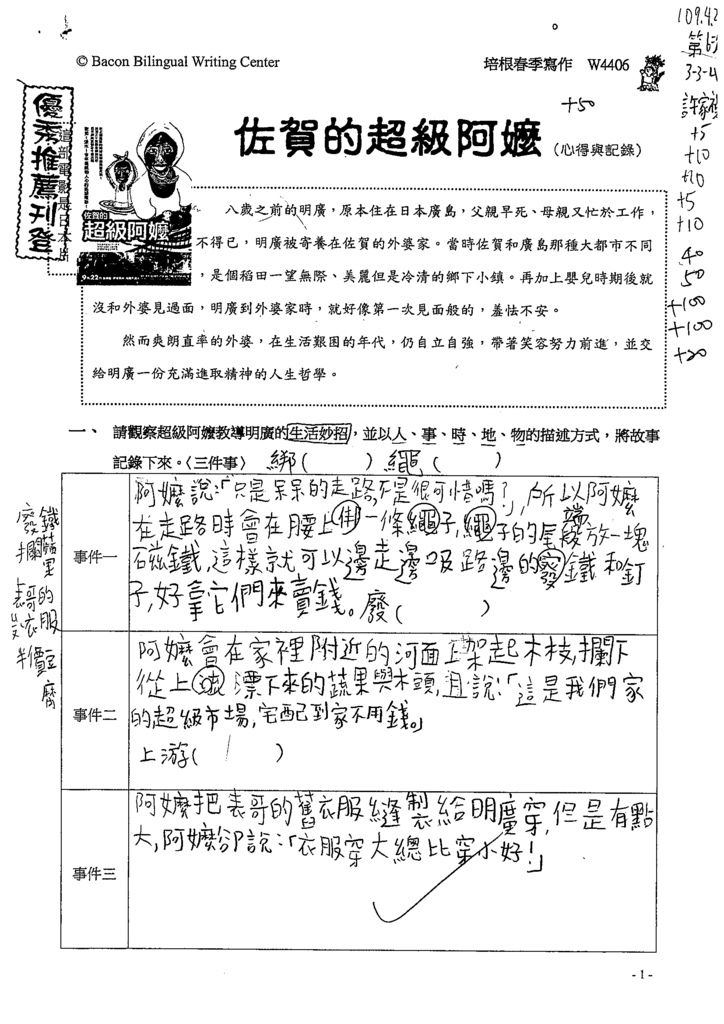 109.4.2
© Bacon Bilingual Writing Center
培根春季寫作 W4406
3-3-4
+50
優秀推薦刊登
佐賀的超級阿嬤（心得與記錄）
+5
+10
+10
+5
+10
40
50
+100
+100
+20
這部電影是日本
佐賀的
超級阿嬤
八歲之前的明廣，原本住在日本廣島，父親早死、母親又忙於工作，
不得已，明廣被寄養在佐賀的外婆家。當時佐賀和廣島那種大都市不同
，是個稻田一望無際、美麗但是冷清的鄉下小鎮。再加上嬰兒時期後就
沒和外婆見過面，明廣到外婆家時，就好像第一次見面般的，羞怯不安。
然而爽朗直率的外婆，在生活艱困的年代，仍自立自強，帶著笑容努力前進，並交
給明廣一份充滿進取精神的人生哲學。
一、 請觀察超級阿嬤教導明廣的生活妙招，並以人、事、時、地、物的描述方式，將故事
記錄下來。〈三件事〉 綁( ) 繩( )
廢鐵
攔蔬果
表哥的衣服
半價豆腐
事件一
阿嬤說：「只是呆呆的走路，不是很可惜嗎？」，所以阿嬤
在走路時會在腰上綁一條繩子，繩子的尾端放一塊
磁鐵，這樣就可以邊走邊吸路邊的廢鐵和釘
子，好拿它們來賣錢。廢( )
事件二
阿嬤會在家裡附近的河面上架起木枝，攔下
從上游漂下來的蔬果與木頭，且說：「這是我們家
的超級市場，宅配到家不用錢。」
上游( )
事件三
阿嬤把表哥的舊衣服縫製給明廣穿，但是有點
大，阿嬤卻說：「衣服穿大總比穿小好！」
- 1 -